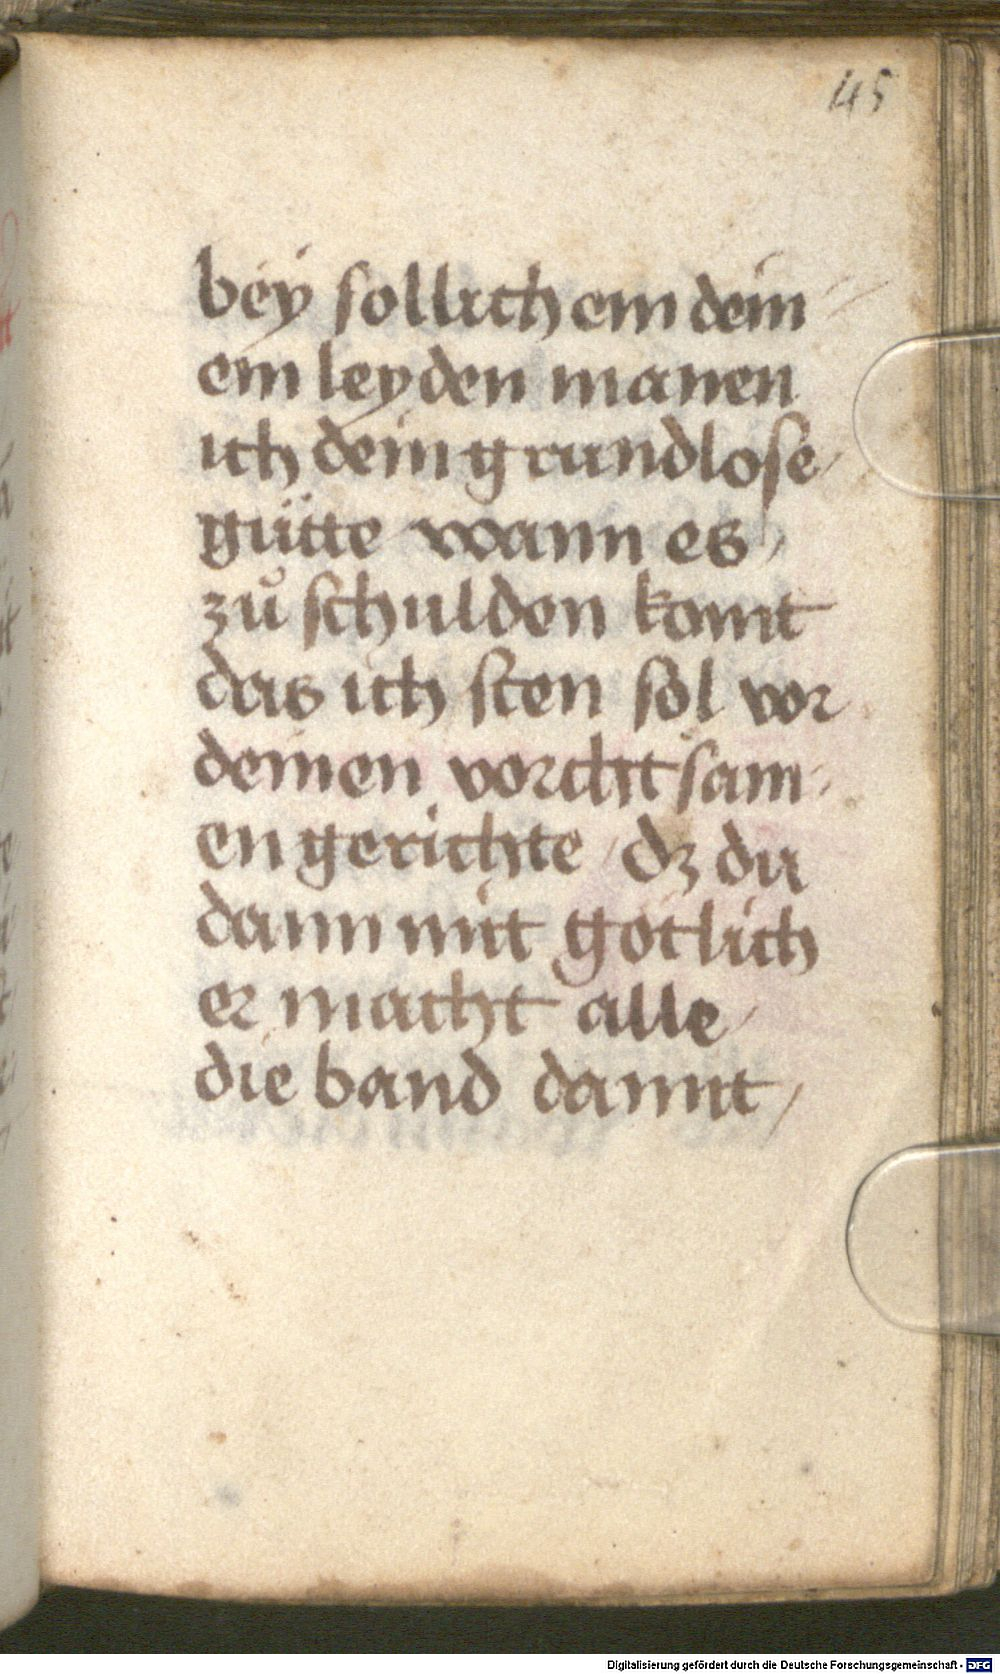 45
bey sollichem dein
em leyden manen
ich dein grundlose
gütte wann es
zů schulden komt
das ich sten sol vor
deinen vorchtsam
en gerichte dz du
dann mit götlich
er macht alle
die band damit
Digitalisierung gefördert durch die Deutsche Forschungsgemeinschaft - DFG